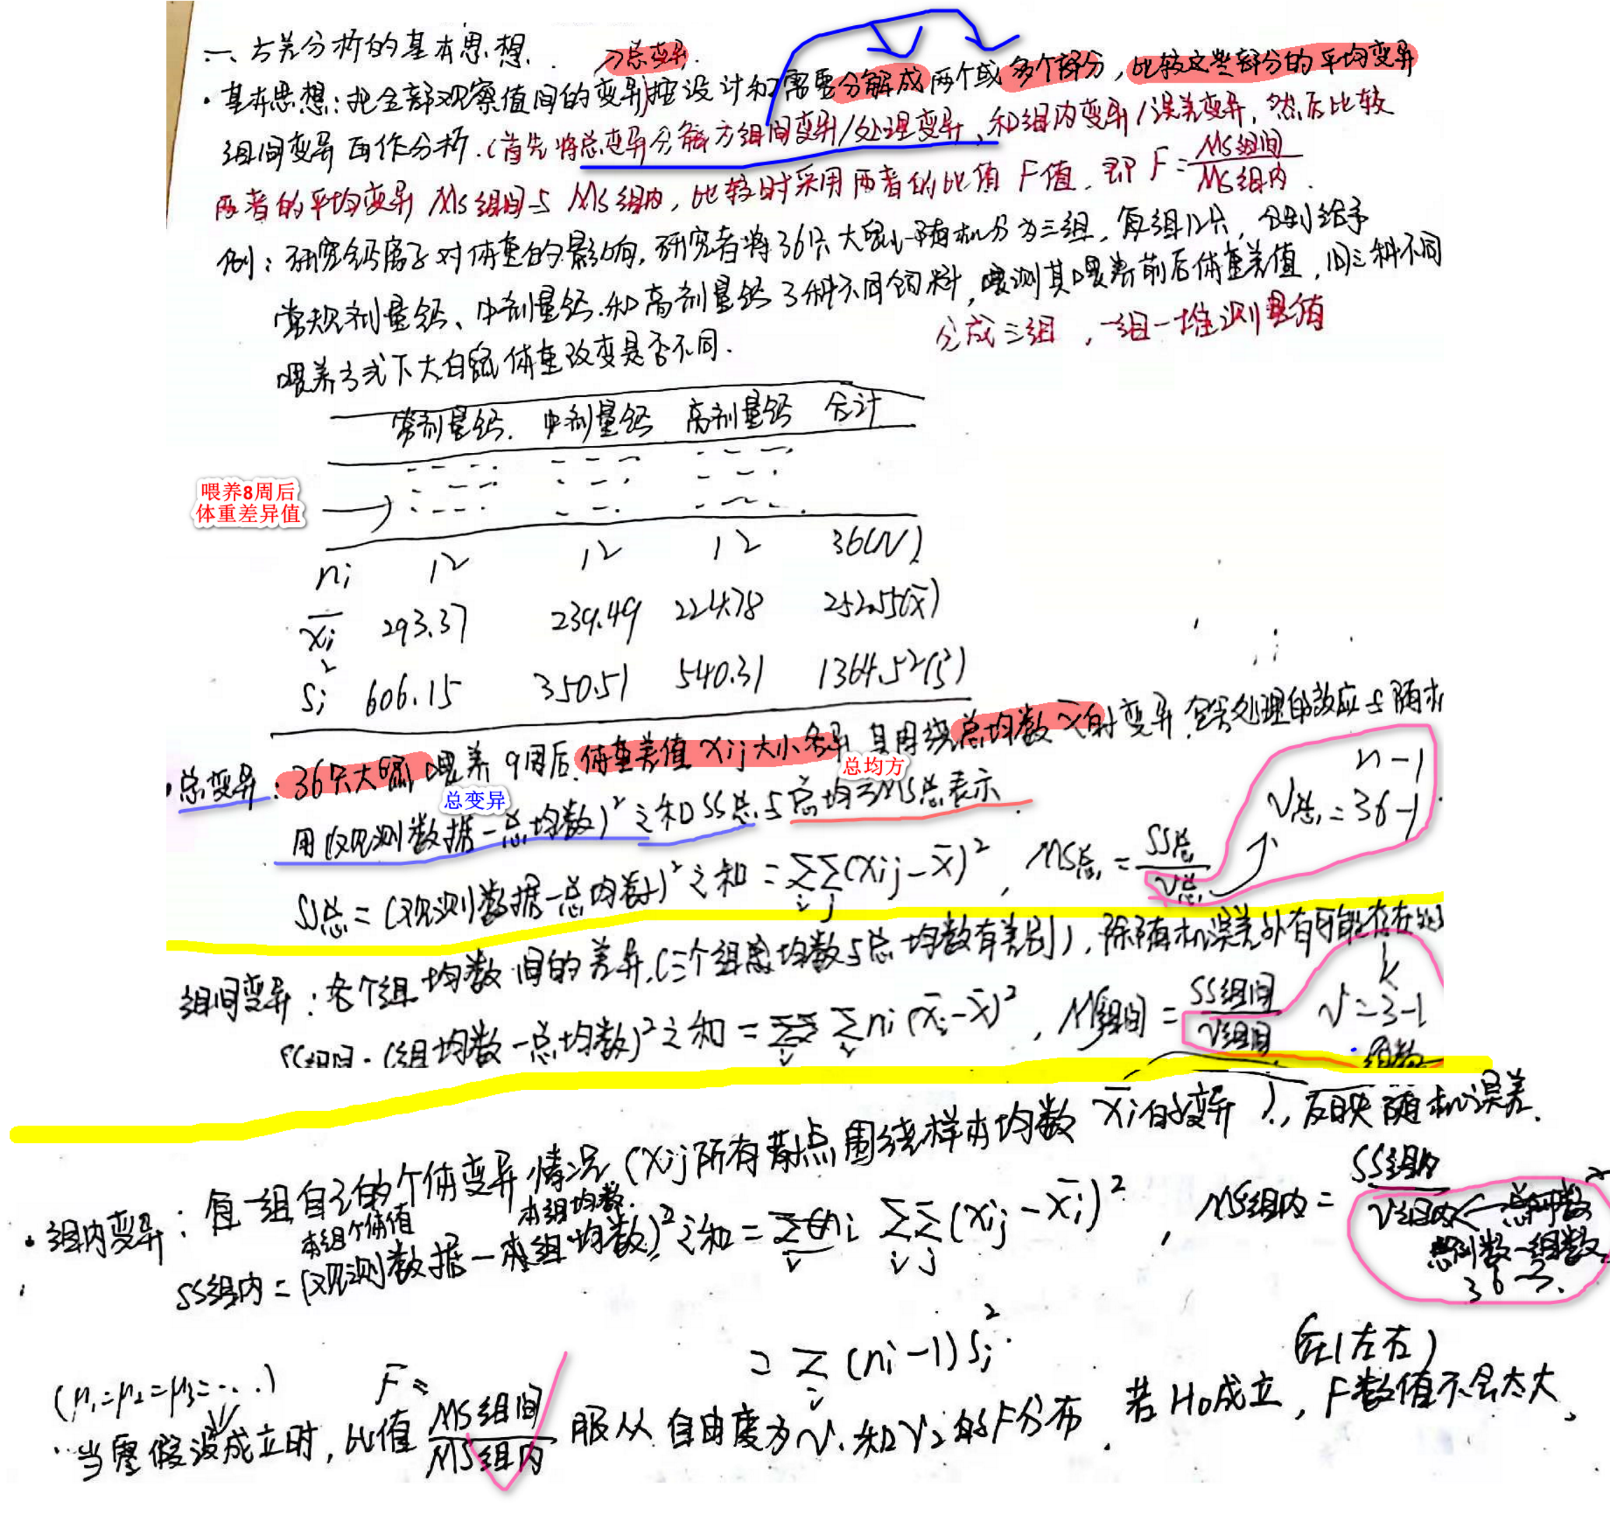 一、方差分析的基本思想.
总变异.
·基本思想:把全部观察值间的变异按设计和需要分解成两个或多个部分,比较这些部分的平均变异
组间变异再作分析.(首先将总变异分解为组间变异/处理变异,和组内变异/误差变异,然后比较
两者的平均变异 MS组间与MS组内,比较时采用两者的比值F值,即F=MS组间/MS组内.
例:研究钙离子对体重的影响,研究者将36只大鼠随机分为三组,每组12只,分别给予
常规剂量钙、中剂量钙、和高剂量钙3种不同饲料,喂测其喂养前后体重差值,问三种不同
喂养方式下大白鼠体重改变是否不同.
分成三组,一组一堆测量值
常剂量钙. 中剂量钙 高剂量钙 合计
喂养8周后
体重差异值
ni 12 12 12 36(N)
x̄i 293.37 239.49 224.78 252.55(x̄)
Si² 606.15 350.51 540.31 1364.52(S²)
·总变异:36只大鼠喂养9周后,体重差值xij大小各异,具围绕总均数x̄的变异,包含处理的效应与随机
总变异
总均方
用(观测数据-总均数)²之和SS总.与总均方MS总表示
n-1
ν总=36-1
SS总=(观测数据-总均数)²之和=∑i∑j(xij-x̄)², MS总=SS总/ν总
组间变异:各个组均数间的差异.(三个组总均数与总均数有差别),除随机误差外有可能存在处
SS组间.(组均数-总均数)²之和= ∑i ni(x̄i-x̄)², MS组间=SS组间/ν组间
k
ν=3-1
组数
·组内变异:每一组自己的个体变异情况(xij所有散点围绕样本均数x̄i的变异),反映随机误差.
本组个体值
本组均数.
SS组内=(观测数据-本组均数)²之和= ∑i∑j(xij-x̄i)², MS组内=SS组内/ν组内
总例数-组数
36-3.
=∑i(ni-1)Si².
(μ1=μ2=μ3=...)
(在1左右)
·当零假设成立时,比值F=MS组间/MS组内 服从自由度为ν1和ν2的F分布.若H0成立,F数值不会太大,